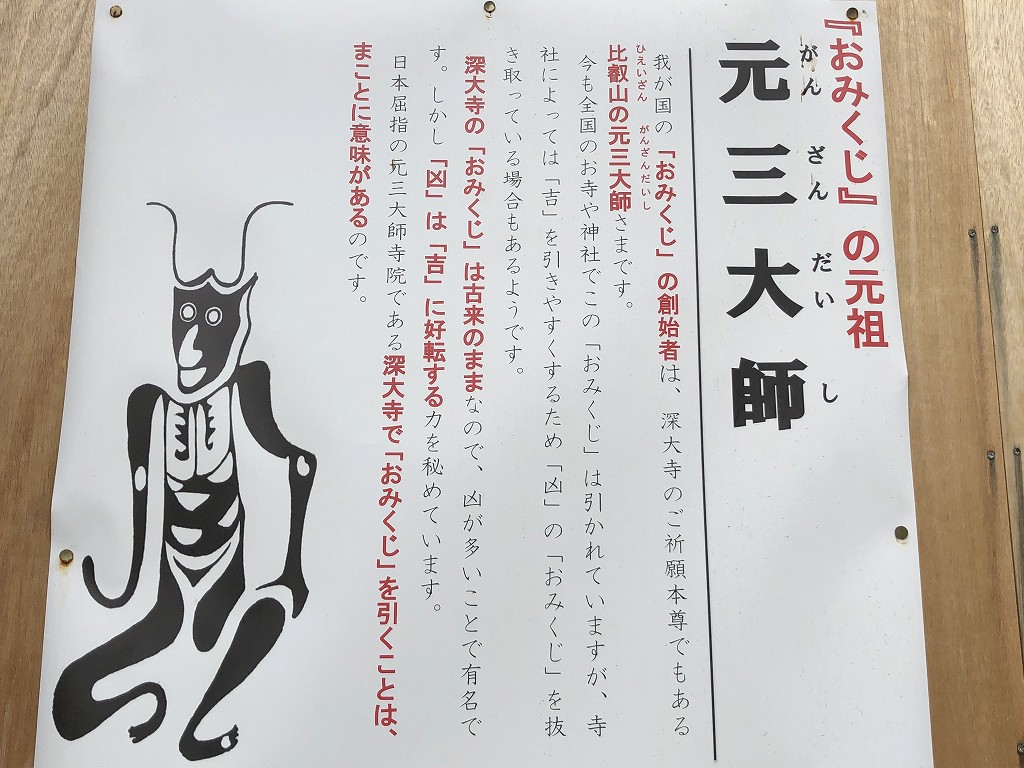 『おみくじ』の元祖
元三大師
がんざんだいし
我が国の「おみくじ」の創始者は、深大寺のご祈願本尊でもある
比叡山の元三大師さまです。
ひえいざん がんざんだいし
今も全国のお寺や神社でこの「おみくじ」は引かれていますが、寺
社によっては「吉」を引きやすくするため「凶」の「おみくじ」を抜
き取っている場合もあるようです。
深大寺の「おみくじ」は古来のままなので、凶が多いことで有名で
す。しかし「凶」は「吉」に好転する力を秘めています。
日本屈指の元三大師寺院である深大寺で「おみくじ」を引くことは、
まことに意味があるのです。